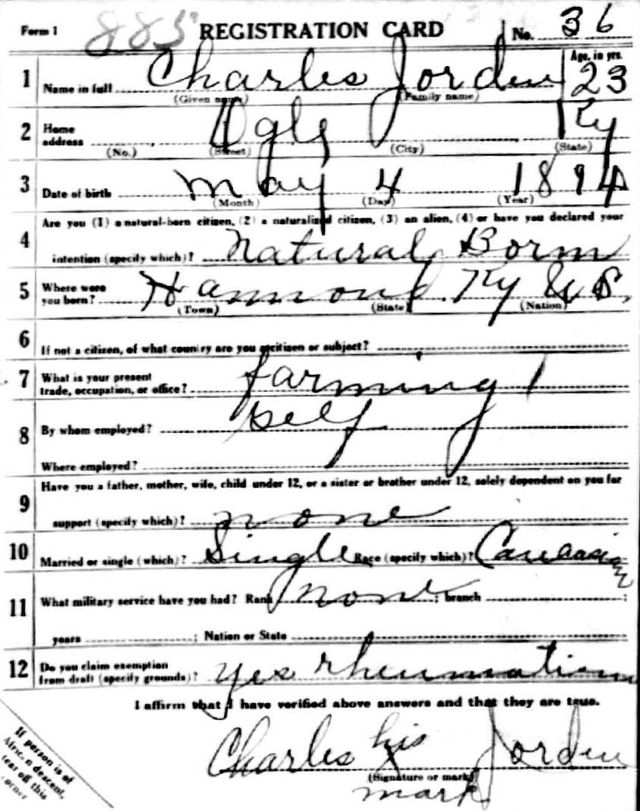 Form 1 885 REGISTRATION CARD No. 36
1 Name in full Charles Jorden Age, in yrs. 23
(Given name) (Family name)
2 Home address Ogle Ky
(No.) (Street) (City) (State)
3 Date of birth May 4 1894
(Month) (Day) (Year)
4 Are you (1) a natural-born citizen, (2) a naturalized citizen, (3) an alien, (4) or have you declared your
intention (specify which)? Natural Born
5 Where were you born? Hammond Ky U S.
(Town) (State) (Nation)
6 If not a citizen, of what country are you a citizen or subject?
7 What is your present trade, occupation, or office? farming 1
8 By whom employed? self
Where employed?
9 Have you a father, mother, wife, child under 12, or a sister or brother under 12, solely dependent on you for
support (specify which)? none
10 Married or single (which)? Single Race (specify which)? Caucasian
11 What military service have you had? Rank none ; branch
years ; Nation or State
12 Do you claim exemption from draft (specify grounds)? yes rheumatism
I affirm that I have verified above answers and that they are true.
Charles his X Jorden
(Signature or mark)
mark
If person is of
African descent,
tear off this
corner